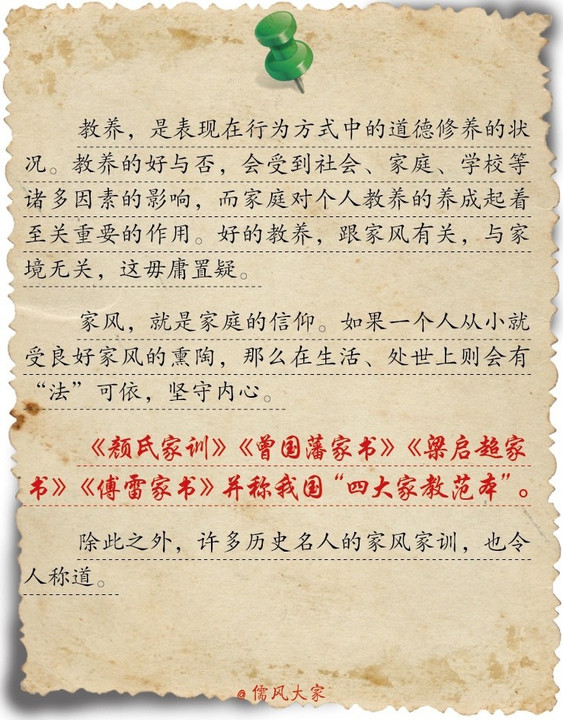 教养，是表现在行为方式中的道德修养的状
况。教养的好与否，会受到社会、家庭、学校等
诸多因素的影响，而家庭对个人教养的养成起着
至关重要的作用。好的教养，跟家风有关，与家
境无关，这毋庸置疑。
家风，就是家庭的信仰。如果一个人从小就
受良好家风的熏陶，那么在生活、处世上则会有
“法”可依，坚守内心。
《颜氏家训》《曾国藩家书》《梁启超家
书》《傅雷家书》并称我国“四大家教范本”。
除此之外，许多历史名人的家风家训，也令
人称道。
@儒风大家